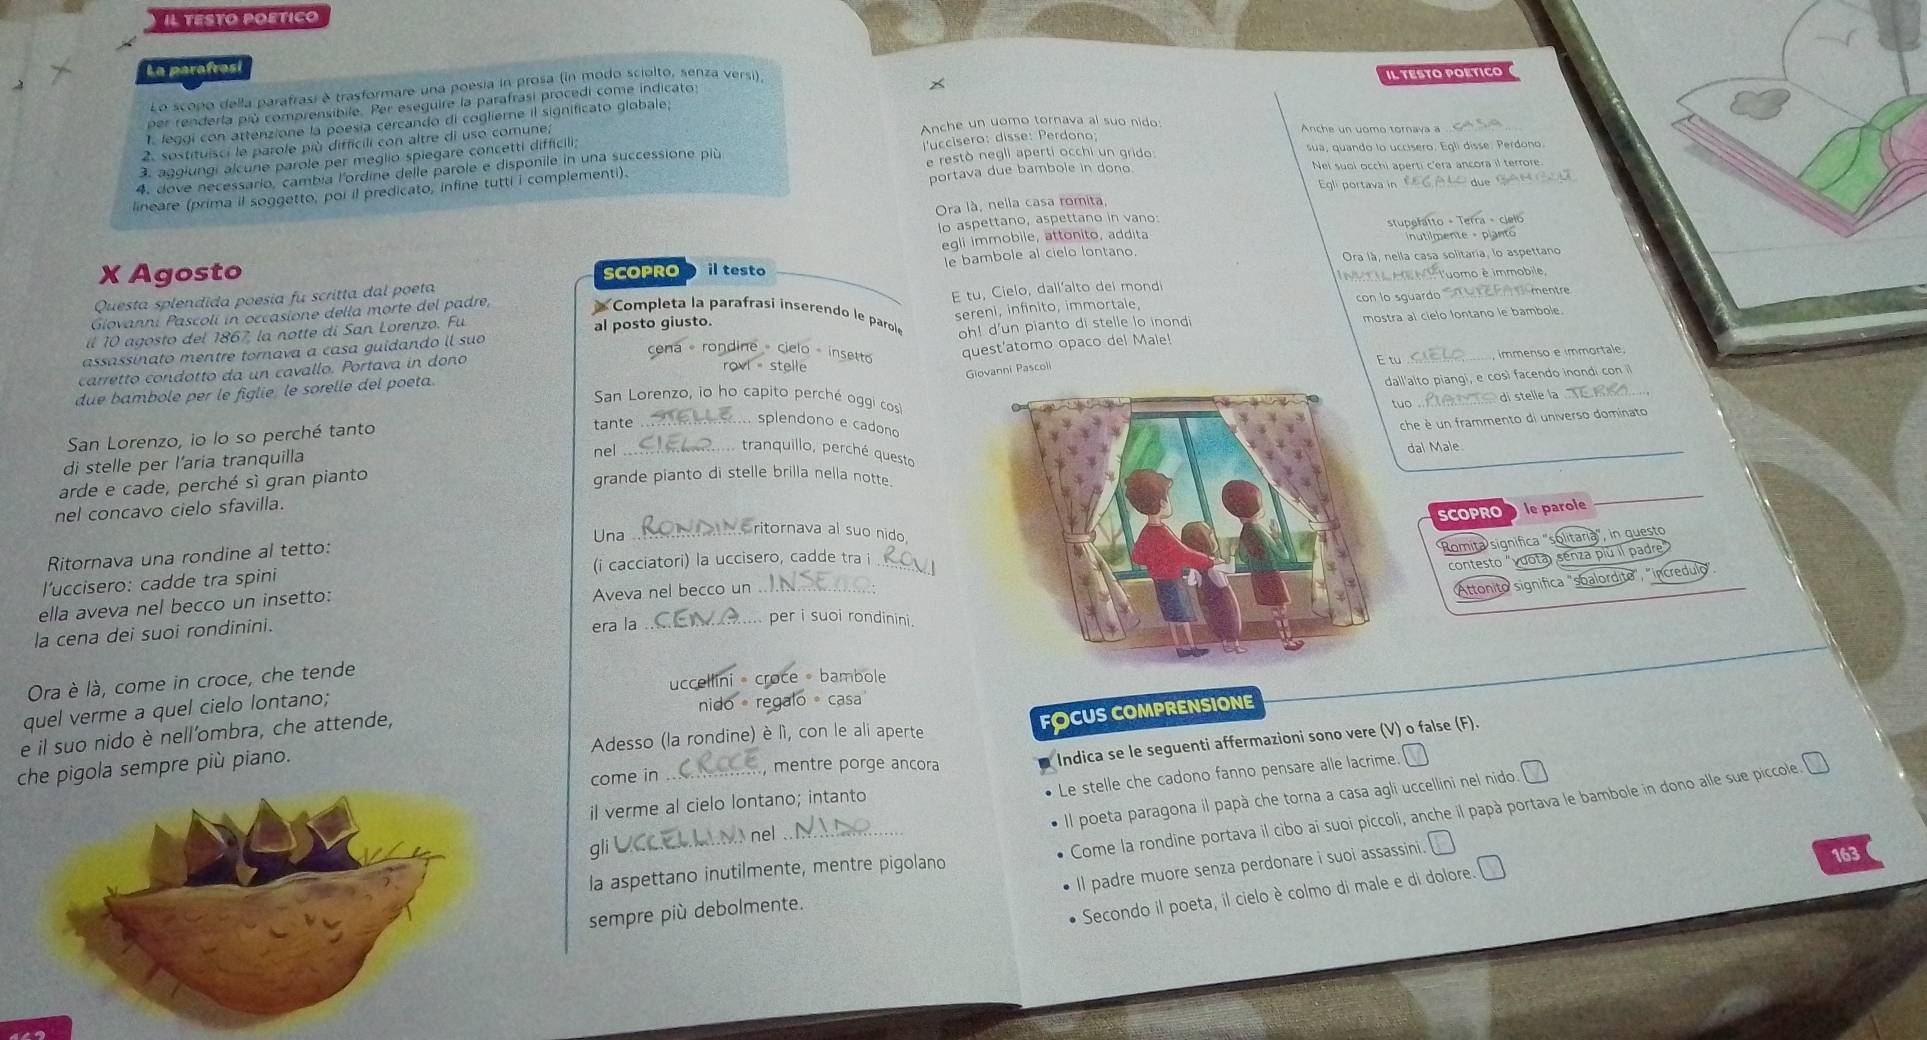 IL TESTO POETICO
La parafrasi
Lo scopo della parafrasi è trasformare una poesia in prosa (in modo sciolto, senza versi),
per renderla più comprensibile. Per eseguire la parafrasi procedi come indicato:
1. leggi con attenzione la poesia cercando di coglierne il significato globale;
2. sostituisci le parole più difficili con altre di uso comune;
3. aggiungi alcune parole per meglio spiegare concetti difficili;
4. dove necessario, cambia l'ordine delle parole e disponile in una successione più
lineare (prima il soggetto, poi il predicato, infine tutti i complementi).
X Agosto
Questa splendida poesia fu scritta dal poeta
Giovanni Pascoli in occasione della morte del padre,
il 10 agosto del 1867, la notte di San Lorenzo. Fu
assassinato mentre tornava a casa guidando il suo
carretto condotto da un cavallo. Portava in dono
due bambole per le figlie, le sorelle del poeta.
San Lorenzo, io lo so perché tanto
di stelle per l'aria tranquilla
arde e cade, perché sì gran pianto
nel concavo cielo sfavilla.
Ritornava una rondine al tetto:
l'uccisero: cadde tra spini
ella aveva nel becco un insetto:
la cena dei suoi rondinini.
Ora è là, come in croce, che tende
quel verme a quel cielo lontano;
e il suo nido è nell'ombra, che attende,
che pigola sempre più piano.
SCOPRO il testo
Completa la parafrasi inserendo le parole
al posto giusto.
cena • rondine • cielo • insetto
rovi • stelle
San Lorenzo, io ho capito perché oggi così
tante STELLE splendono e cadono
nel CIELO tranquillo, perché questo
grande pianto di stelle brilla nella notte.
Una RONDINE ritornava al suo nido,
(i cacciatori) la uccisero, cadde tra i ROVI
Aveva nel becco un INSETTO:
era la CENA per i suoi rondinini.
uccellini • croce • bambole
nido • regalo • casa
Adesso (la rondine) è lì, con le ali aperte
come in CROCE, mentre porge ancora
il verme al cielo lontano; intanto
gli UCCELLINI nel NIDO
la aspettano inutilmente, mentre pigolano
sempre più debolmente.
IL TESTO POETICO
Anche un uomo tornava al suo nido:
l'uccisero: disse: Perdono;
e restò negli aperti occhi un grido:
portava due bambole in dono.
Ora là, nella casa romita,
lo aspettano, aspettano in vano:
egli immobile, attonito, addita
le bambole al cielo lontano.
E tu, Cielo, dall'alto dei mondi
sereni, infinito, immortale,
oh! d'un pianto di stelle lo inondi
quest'atomo opaco del Male!
Giovanni Pascoli
Anche un uomo tornava a CASA
sua, quando lo uccisero. Egli disse: Perdono.
Nei suoi occhi aperti c'era ancora il terrore.
Egli portava in REGALO due BAMBOLE
stupefatto • Terra • cielo
inutilmente • pianto
Ora là, nella casa solitaria, lo aspettano
INUTILMENTE l'uomo è immobile,
con lo sguardo STUPEFATTO mentre
mostra al cielo lontano le bambole.
E tu CIELO, immenso e immortale,
dall'alto piangi, e così facendo inondi con il
tuo PIANTO di stelle la TERRA,
che è un frammento di universo dominato
dal Male.
SCOPRO le parole
Romita significa "solitaria", in questo
contesto "vuota, senza più il padre".
Attonito significa "sbalordito", "incredulo".
FOCUS COMPRENSIONE
Indica se le seguenti affermazioni sono vere (V) o false (F).
• Le stelle che cadono fanno pensare alle lacrime. V
• Il poeta paragona il papà che torna a casa agli uccellini nel nido. V
• Come la rondine portava il cibo ai suoi piccoli, anche il papà portava le bambole in dono alle sue piccole. V
• Il padre muore senza perdonare i suoi assassini. F
• Secondo il poeta, il cielo è colmo di male e di dolore.
163